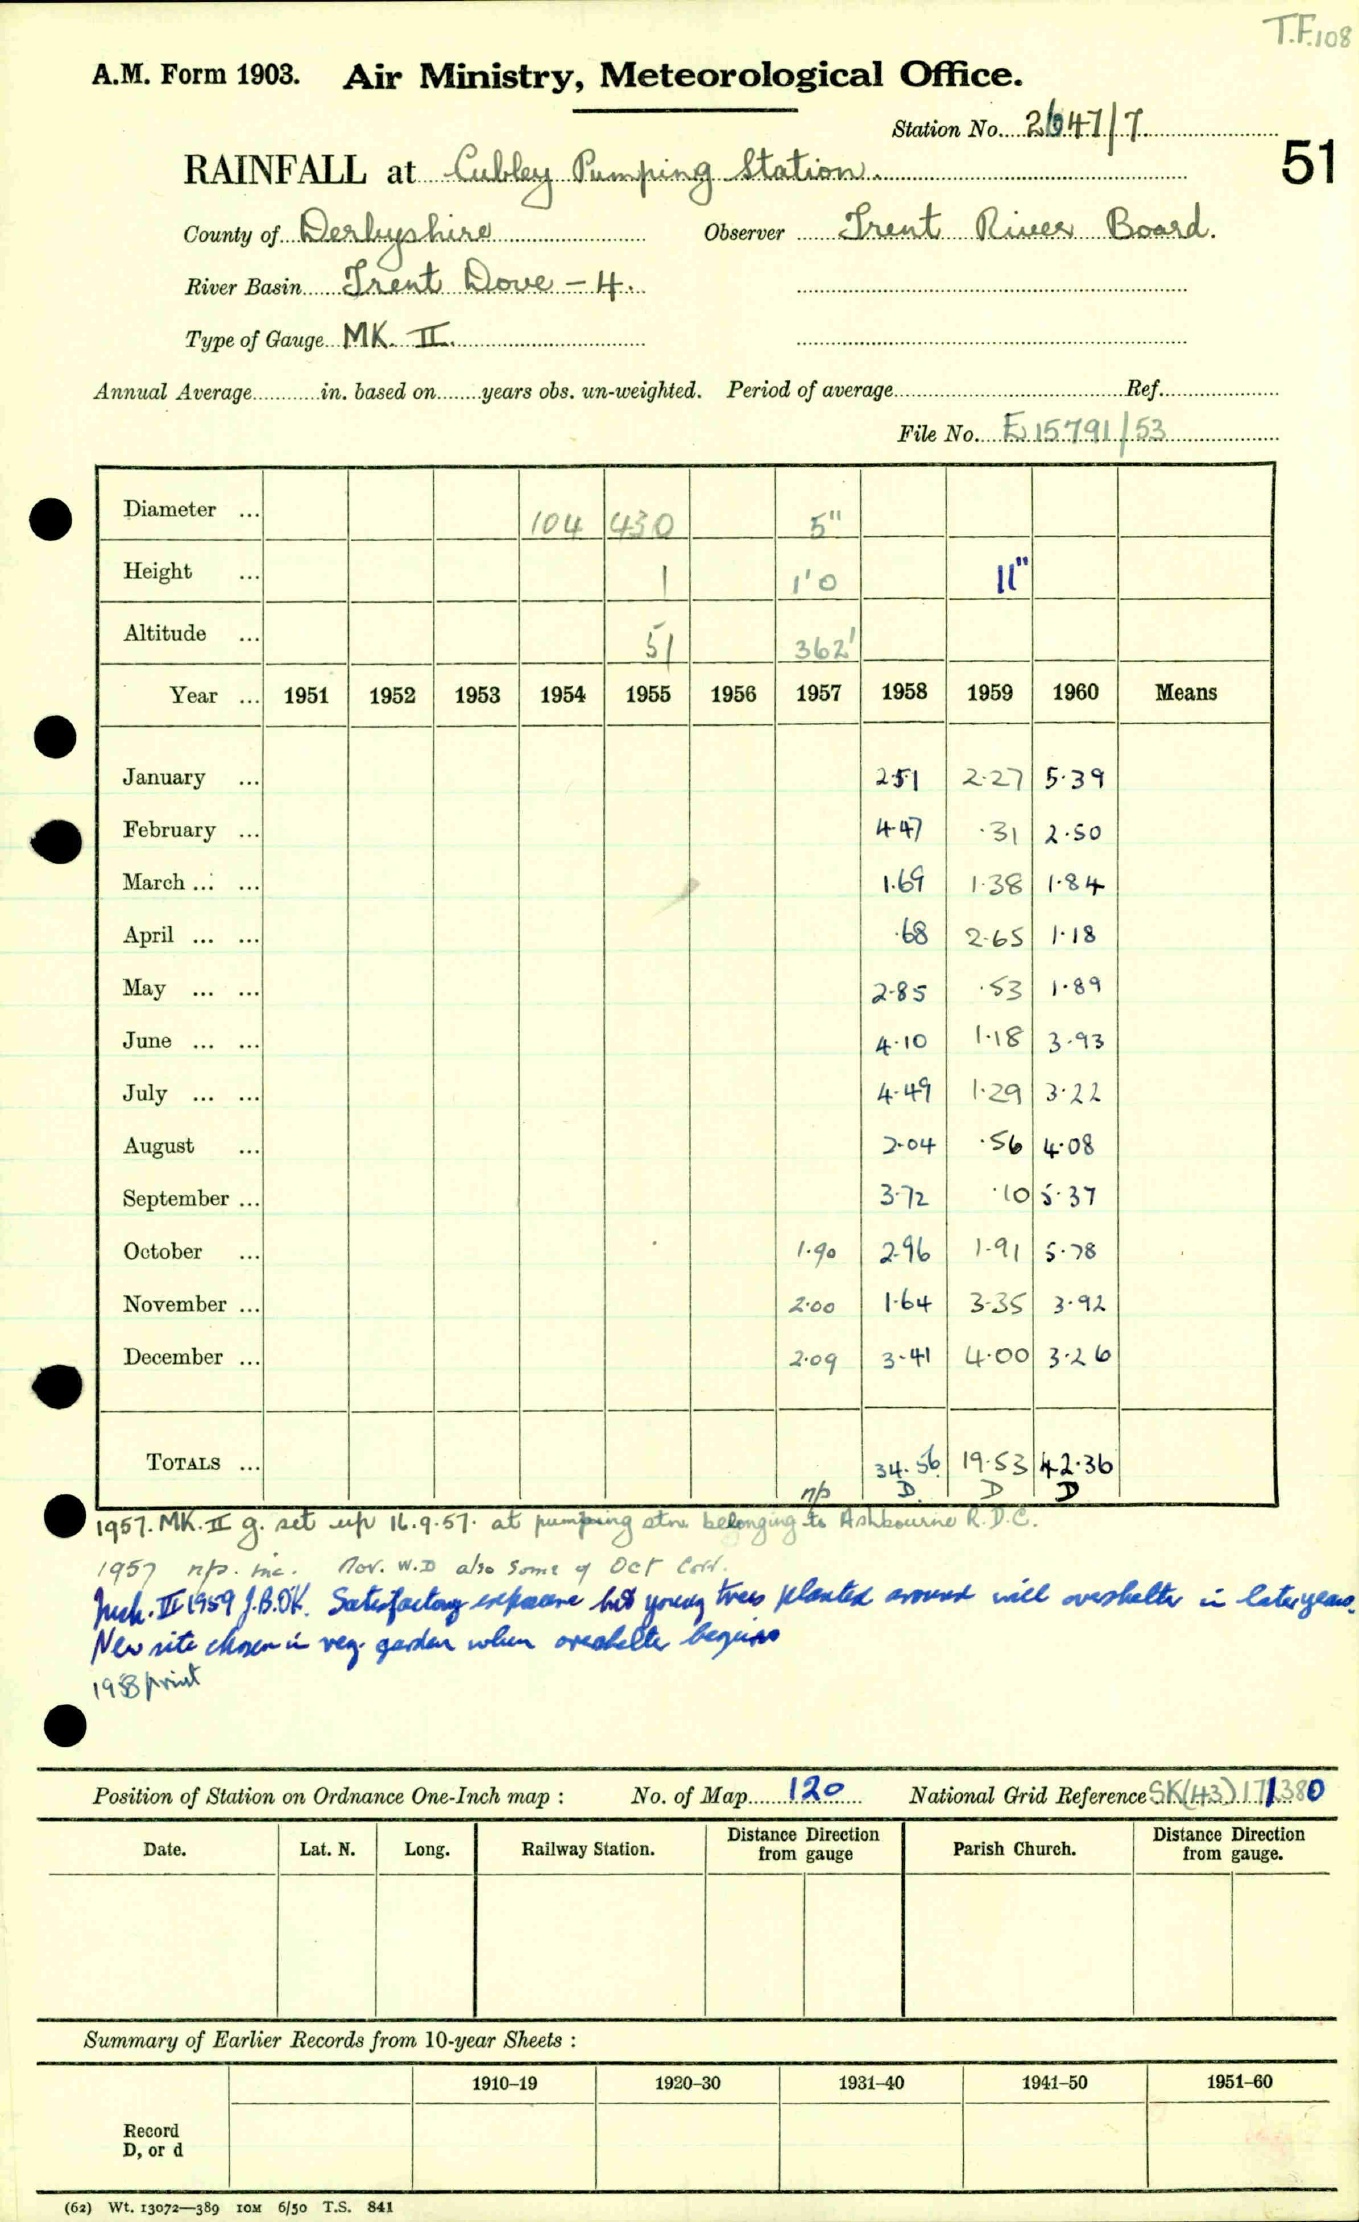 T.F.108
A.M. Form 1903. Air Ministry, Meteorological Office.
Station No. 2647/7
51
RAINFALL at Cubley Pumping Station.
County of Derbyshire Observer Trent River Board.
River Basin Trent Dove - 4.
Type of Gauge MK. II.
Annual Average in. based on years obs. un-weighted. Period of average Ref.
File No. E15791/53
Diameter ... 104 430 5"
Height ... 1 1'0 11"
Altitude ... 51 362'
Year ... 1951 1952 1953 1954 1955 1956 1957 1958 1959 1960 Means
January ... 2.51 2.27 5.39
February ... 4.47 .31 2.50
March ... ... 1.69 1.38 1.84
April ... ... .68 2.65 1.18
May ... ... 2.85 .53 1.89
June ... ... 4.10 1.18 3.93
July ... ... 4.49 1.29 3.22
August ... 2.04 .56 4.08
September ... 3.72 .10 5.37
October ... 1.90 2.96 1.91 5.78
November ... 2.00 1.64 3.35 3.92
December ... 2.09 3.41 4.00 3.26
TOTALS ... 34.56 19.53 42.36
np D. D D
1957. MK. II g. set up 16.9.57. at pumping stn. belonging to Ashbourne R.D.C.
1957 np. inc. Nov. W.D also some of Oct Corr.
II 1959 J.B.O'K. Satisfactory exposure but young trees planted around will overshelter in later years.
New site chosen in veg. garden when overshelter begins
1958 print
Position of Station on Ordnance One-Inch map : No. of Map 120 National Grid Reference SK(43)171380
Date. Lat. N. Long. Railway Station. Distance Direction from gauge Parish Church. Distance Direction from gauge.
Summary of Earlier Records from 10-year Sheets :
1910–19 1920–30 1931–40 1941–50 1951–60
Record
D, or d
(62) Wt. 13072—389 10M 6/50 T.S. 841